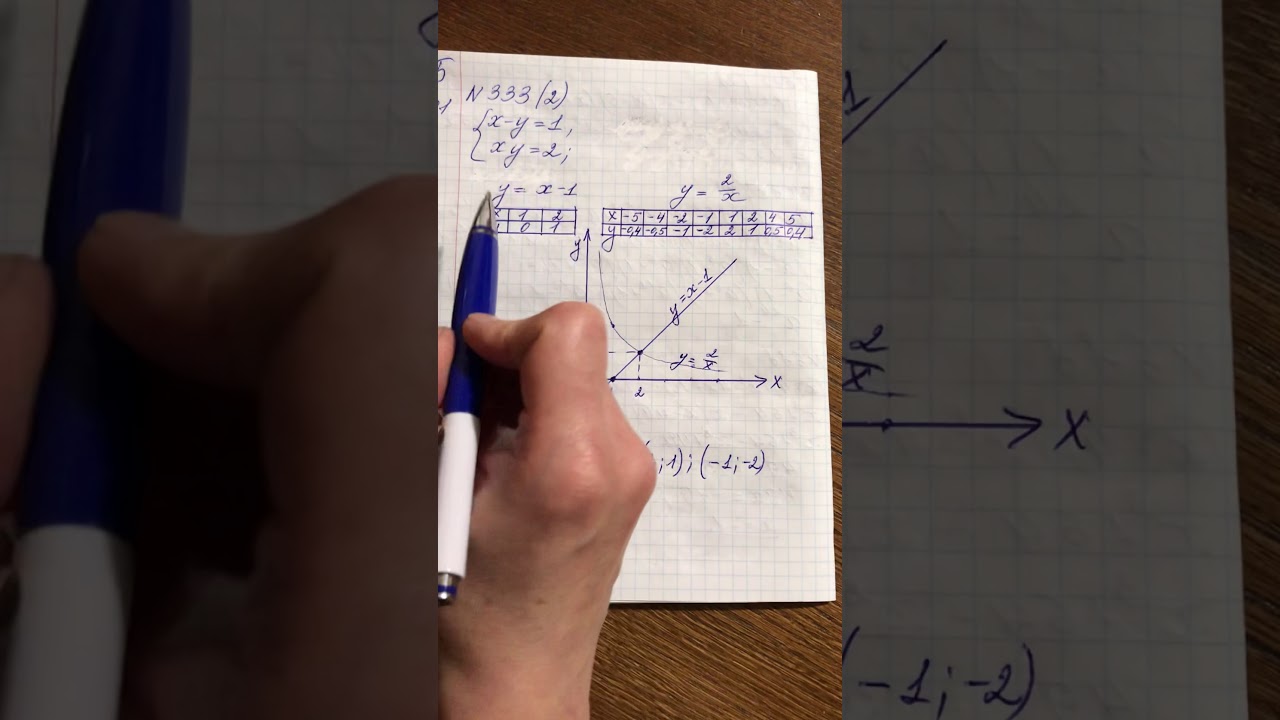 5
1
N 333 (2)
x-y=1,
xy=2;
y = x-1
y = 2/x
x 1 2
0 1
x -5 -4 -2 -1 1 2 4 5
y -0,4 -0,5 -1 -2 2 1 0,5 0,4
y
y=x-1
y = 2/x
x
2
;1); (-1;-2)
1
2/x
x
(-1;-2)